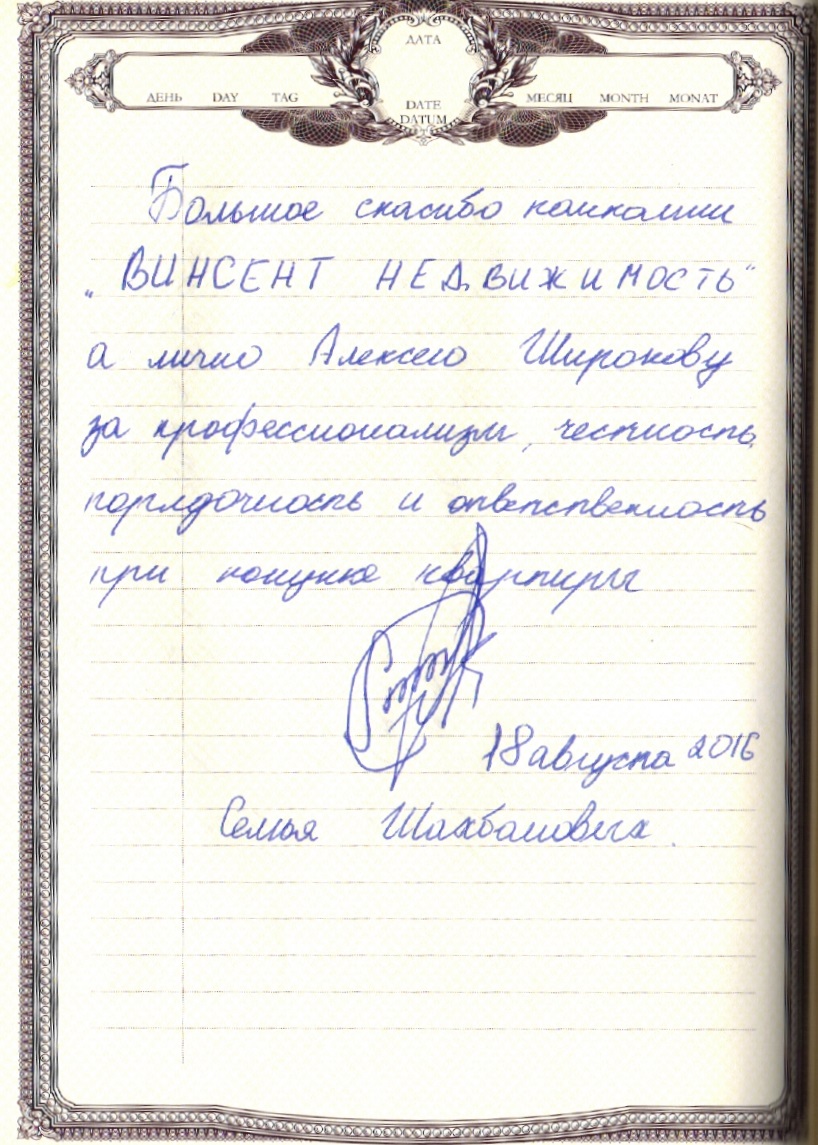 ДАТА
ДЕНЬ DAY TAG
DATE
DATUM
МЕСЯЦ MONTH MONAT
Большое спасибо компании
„ВИНСЕНТ НЕДВИЖИМОСТЬ“
а лично Алексею Широкову
за профессионализм, честность,
порядочность и ответственность
при покупке квартиры
18 августа 2016
Семья Шахбановых.